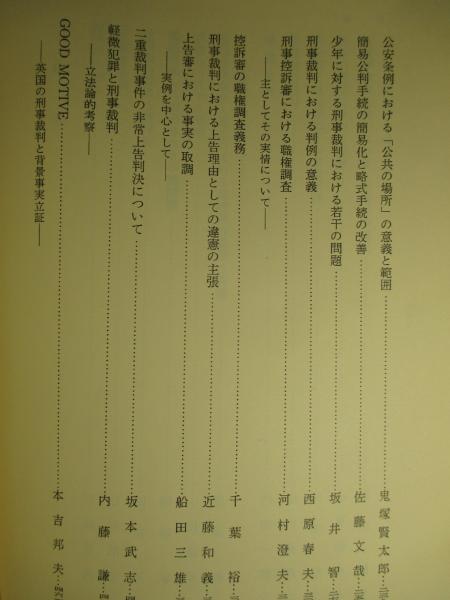 公安条例における「公共の場所」の意義と範囲……鬼塚賢太郎
簡易公判手続の簡易化と略式手続の改善……佐藤文哉
少年に対する刑事裁判における若干の問題……坂井智
刑事裁判における判例の意義……西原春夫
刑事控訴審における職権調査……河村澄夫
——主としてその実情について——
控訴審の職権調査義務……千葉裕
刑事裁判における上告理由としての違憲の主張……近藤和義
上告審における事実の取調……船田三雄
——実例を中心として——
二重裁判事件の非常上告判決について……坂本武志
軽微犯罪と刑事裁判……内藤謙
——立法論的考察——
GOOD MOTIVE……本吉邦夫
——英国の刑事裁判と背景事実立証——